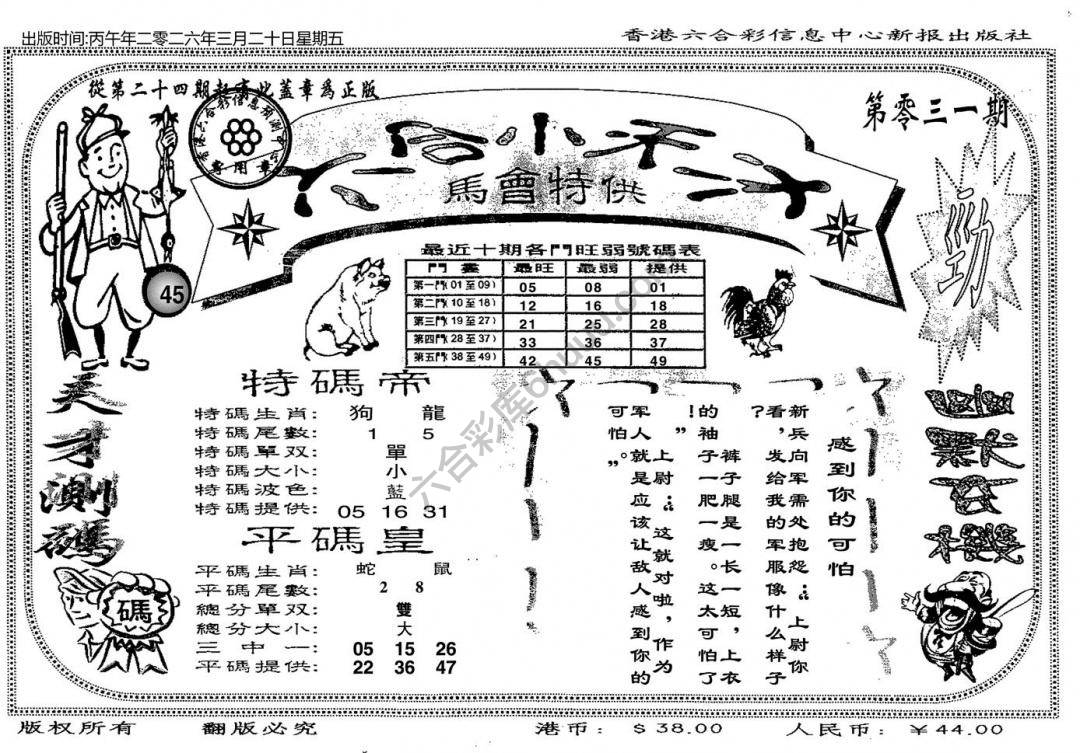 出版时间:丙午年二零二六年三月二十日星期五
香港六合彩信息中心新报出版社
從第二十四期起有此蓋章爲正版
第零三一期
專用章
馬會特供
勁
45
最近十期各門旺弱號碼表
門畫 最旺 最弱 提供
第一門(01至09) 05 08 01
第二門(10至18) 12 16 18
第三門(19至27) 21 25 28
第四門(28至37) 33 36 37
第五門(38至49) 42 45 49
天才測碼
特碼帝
特碼生肖: 狗 龍
特碼尾數: 1 5
特碼單双: 單
特碼大小: 小
特碼波色: 藍
特碼提供: 05 16 31
平碼皇
平碼生肖: 蛇 鼠
平碼尾數: 2 8
總分單双: 雙
總分大小: 大
三中一: 05 15 26
平碼提供: 22 36 47
碼
感到你的可怕
新兵向军需处抱怨:“上尉你
看,发给我的军服像什么样子
?
裤子腿是一长一短,上衣
的袖子一肥一瘦。这太可怕了
!”
上尉:“这就对啦,作为
军人就是应该让敌人感到你的
可怕。”
六合彩库6huuu.com
版权所有
翻版必究
港币: $38.00
人民币: ¥44.00